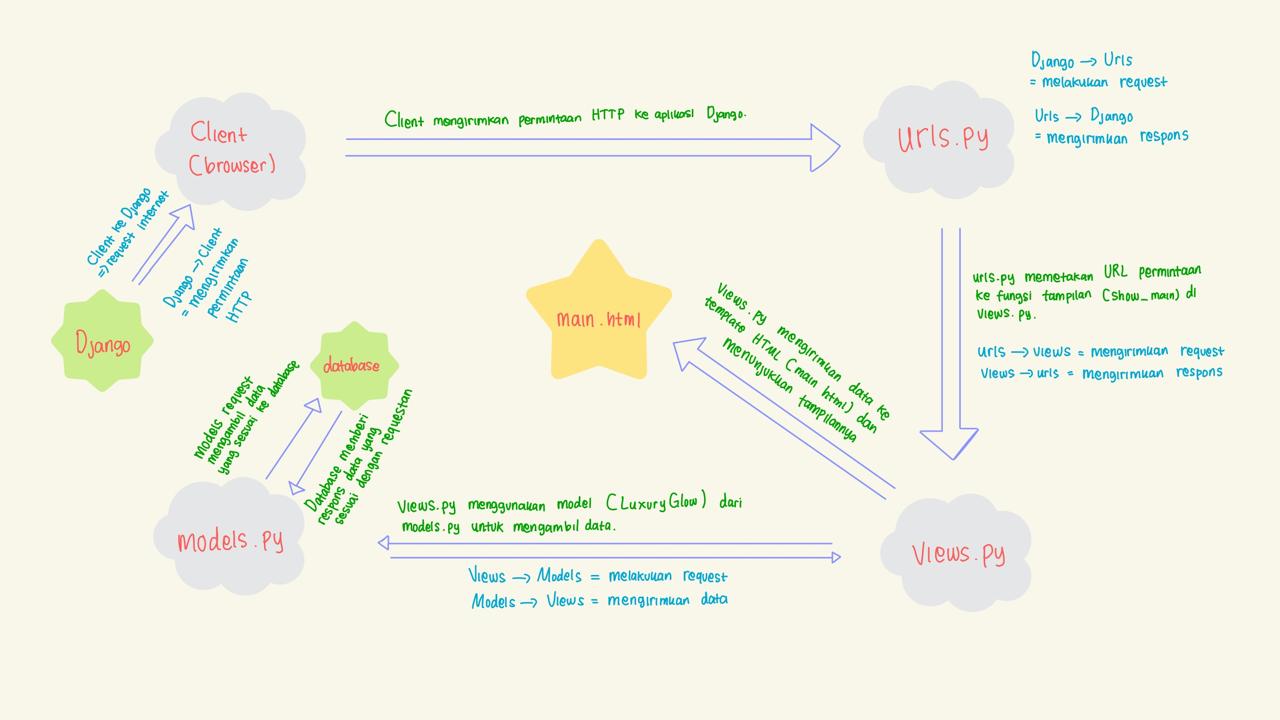 Client
(browser)
Client mengirimkan permintaan HTTP ke aplikasi Django.
urls.py
Django → Urls
= melakukan request
Urls → Django
= mengirimkan respons
Client ke Django
=> request internet
Django → Client
= mengirimkan
permintaan
HTTP
Django
main.html
urls.py memetakan URL permintaan
ke fungsi tampilan (show_main) di
views.py.
Urls → views = mengirimkan request
Views → urls = mengirimkan respons
Views.py mengirimkan data ke
template HTML (main html) dan
menunjukkan tampilannya
database
Models request
mengambil data
yang sesuai ke database
Database memberi
respons data yang
sesuai dengan requestan
models.py
Views.py menggunakan model (LuxuryGlow) dari
models.py untuk mengambil data.
Views → Models = melakukan request
Models → Views = mengirimkan data
Views.py